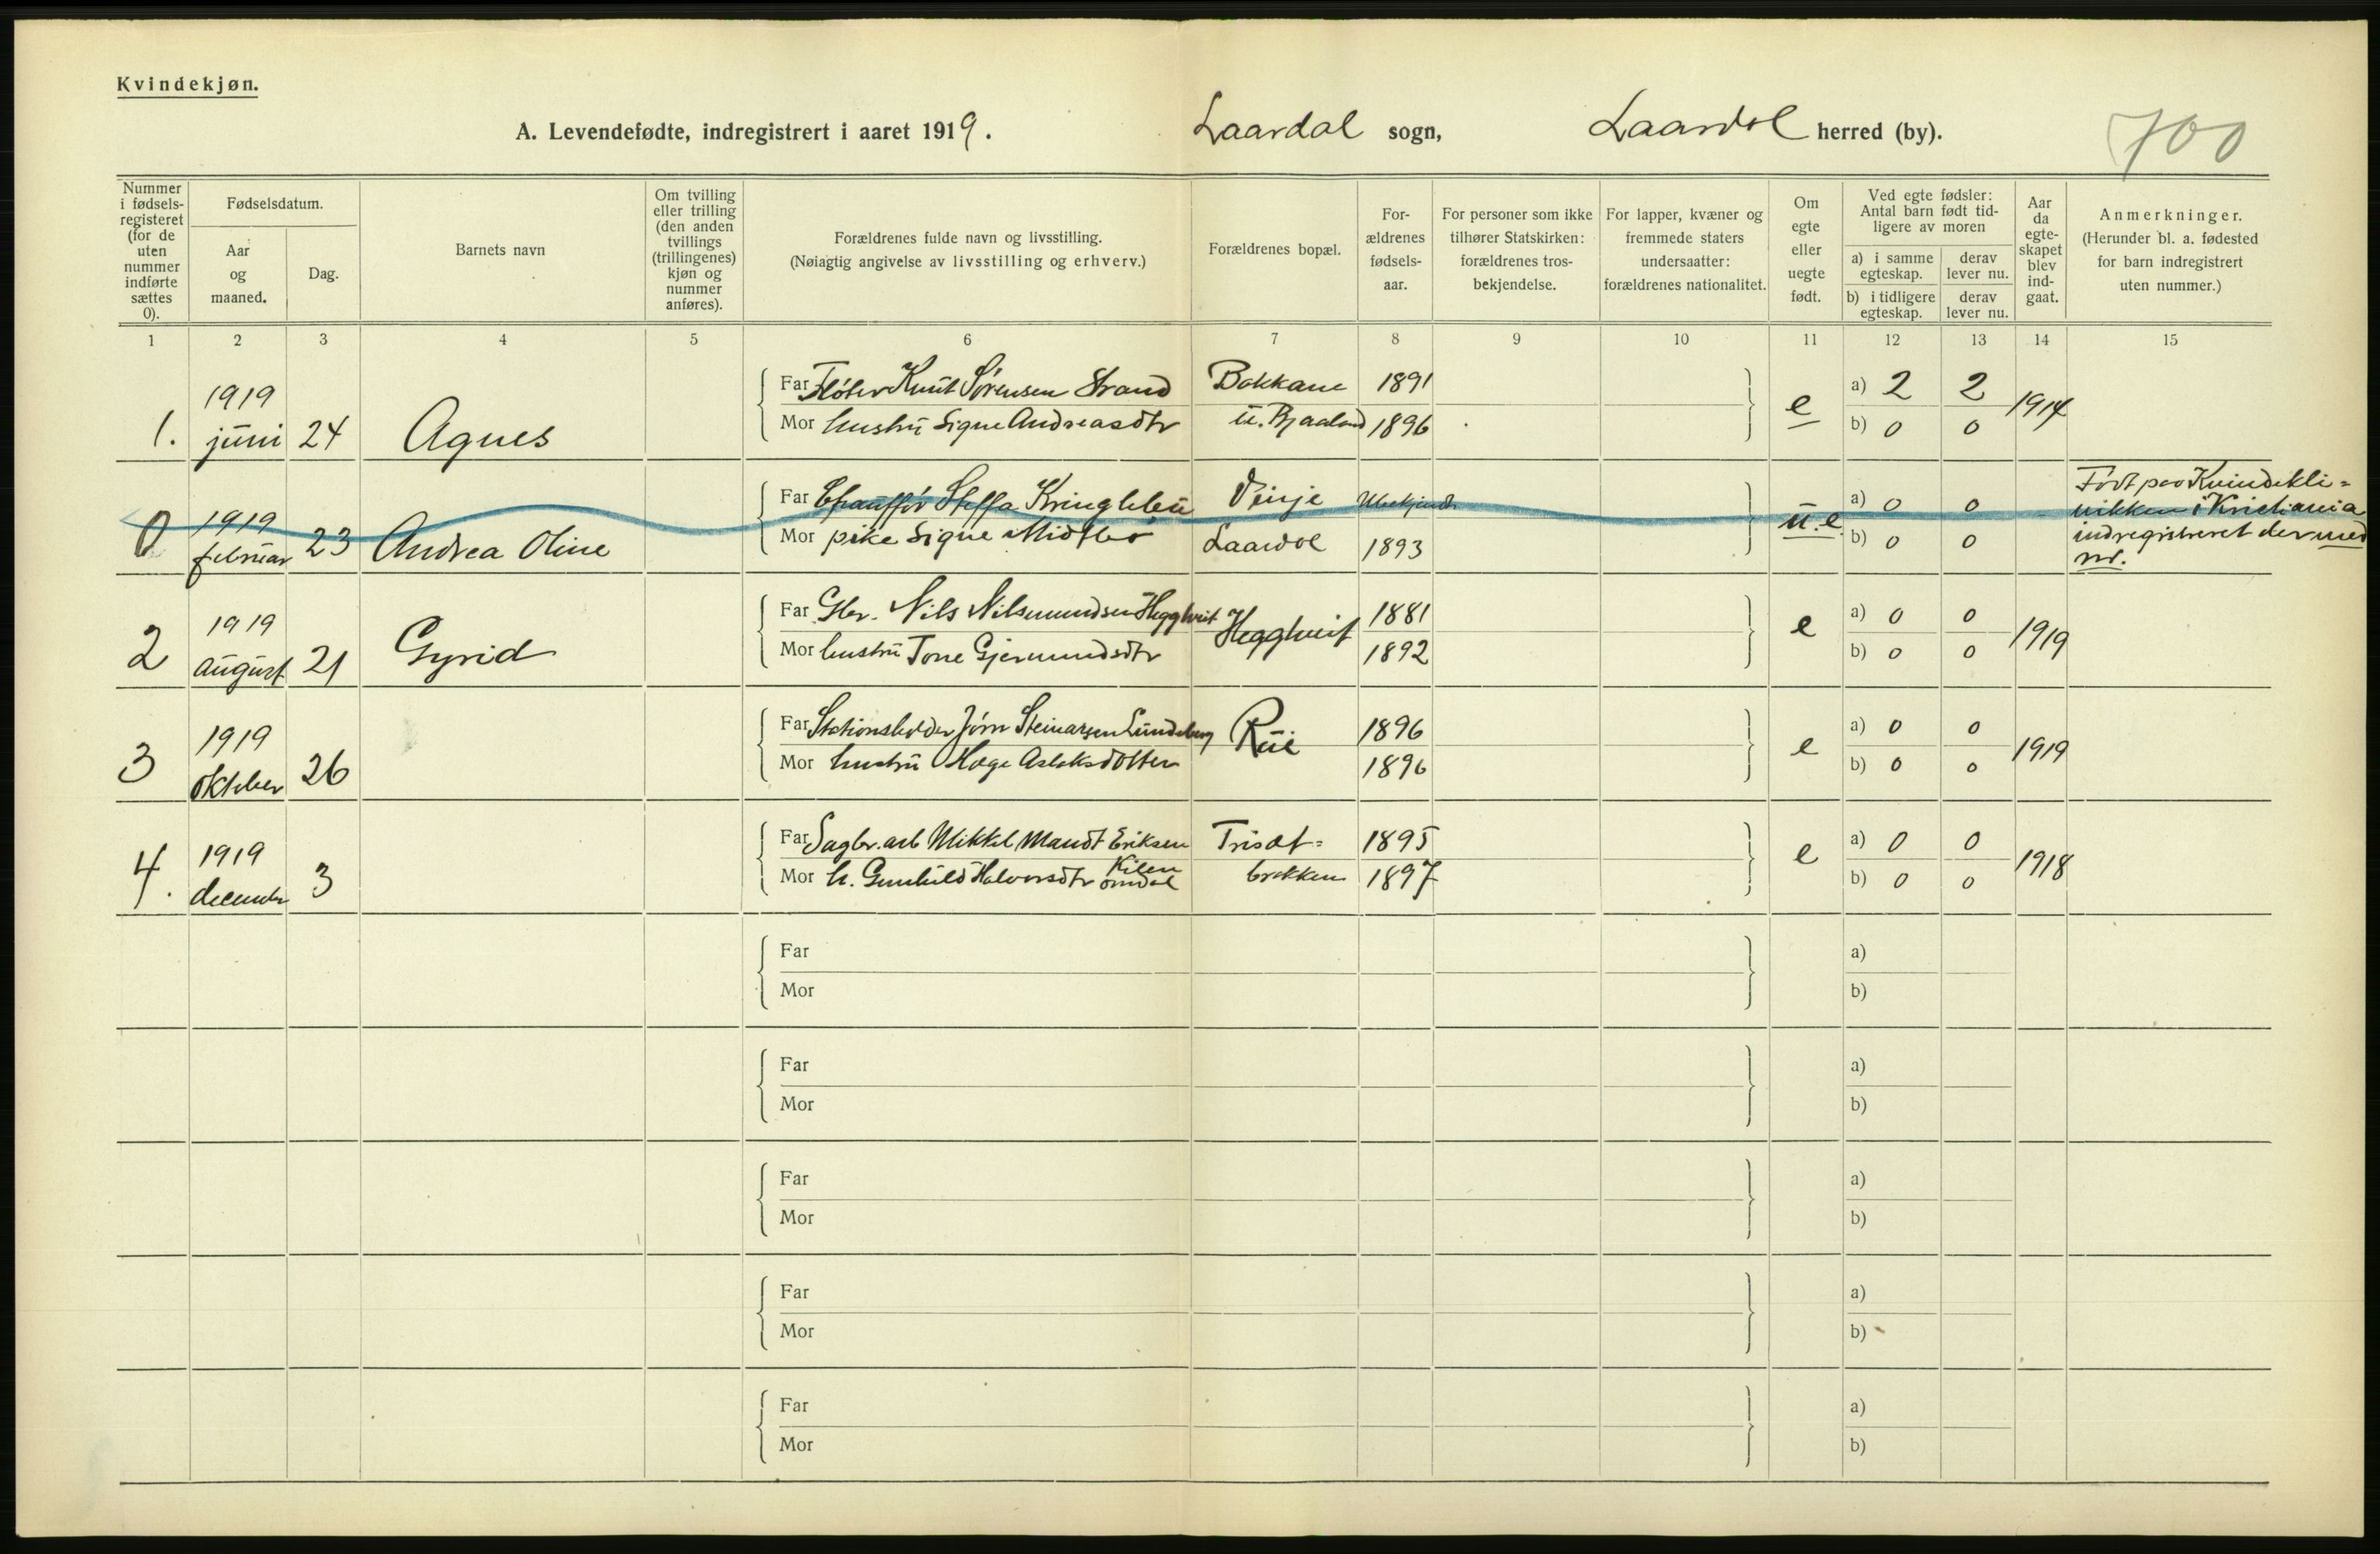 Kvindekjøn.
A. Levendefødte, indregistrert i aaret 1919. Laardal sogn, Laardal herred (by). 700
Nummer i fødselsregisteret (for de uten nummer indførte sættes 0).
Fødselsdatum.
Aar og maaned.
Dag.
Barnets navn
Om tvilling eller trilling (den anden tvillings (trillingenes) kjøn og nummer anføres).
Forældrenes fulde navn og livsstilling.
(Nøiagtig angivelse av livsstilling og erhverv.)
Forældrenes bopæl.
Forældrenes fødselsaar.
For personer som ikke tilhører Statskirken: forældrenes trosbekjendelse.
For lapper, kvæner og fremmede staters undersaatter: forældrenes nationalitet.
Om egte eller uegte født.
Ved egte fødsler: Antal barn født tidligere av moren
a) i samme egteskap.
derav lever nu.
b) i tidligere egteskap.
derav lever nu.
Aar da egteskapet blev indgaat.
Anmerkninger.
(Herunder bl. a. fødested for barn indregistrert uten nummer.)
1 2 3 4 5 6 7 8 9 10 11 12 13 14 15
1. 1919 juni 24 Agnes
Far Fløter Knut Sørensen Strand Bakkane 1891
Mor hustru Signe Andreasdtr u. Bjaaland 1896
e a) 2 2 b) 0 0 1914
0 1919 februar 23 Andrea Oline
Far Chauffør Steffa Kringlebu Vinje Ubekjendt
Mor pike Signe Midtbø Laardal 1893
u.e. a) 0 0 b) 0 0 -
Født paa Kvindekli=
nikken i Kristiania
indregistreret der med
nr.
2 1919 august 21 Gyrid
Far Gbr. Nils Nilsmundsen Hegghveit Hegghveit 1881
Mor hustru Tone Gjermundsdtr 1892
e a) 0 0 b) 0 0 1919
3 1919 oktober 26
Far Stationsholder Jørn Steinarsen Lundeberg Rui 1896
Mor hustru Hæge Aslaksdotter 1896
e a) 0 0 b) 0 0 1919
4. 1919 december 3
Far Sagbr. arb Mikkel Mandt Eriksen Kilen Trisæt= 1895
Mor h. Gunhild Halvorsdtr Omdal bakken 1897
e a) 0 0 b) 0 0 1918
Far a)
Mor b)
Far a)
Mor b)
Far a)
Mor b)
Far a)
Mor b)
Far a)
Mor b)